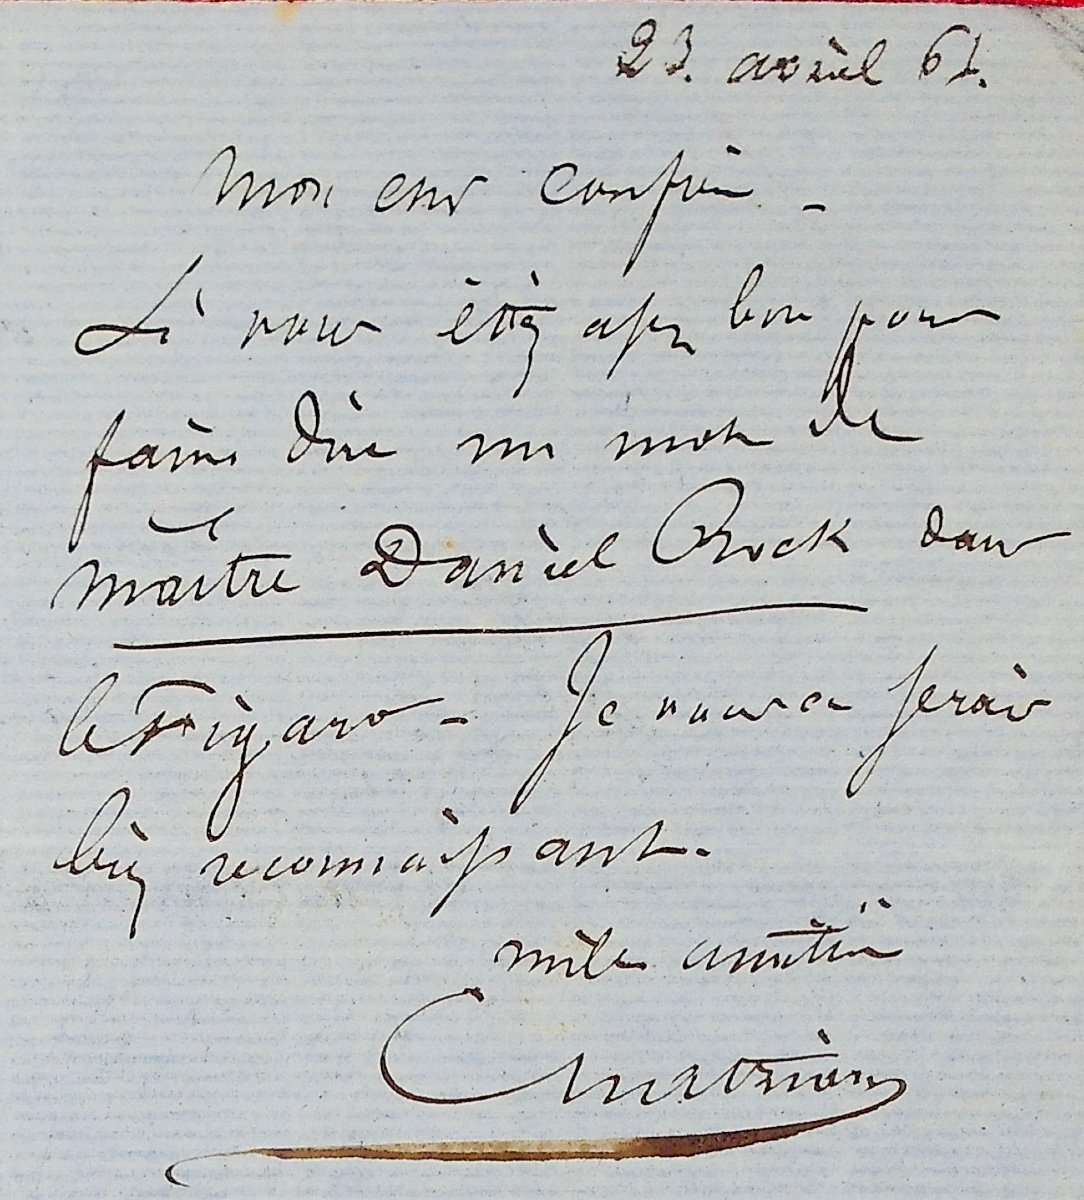 23. avril 61.
Mon cher confrère -
Si vous êtiez assez bon pour
faire dire un mot de
maître Daniel Rock dans
le Figaro - Je vous en serais
bien reconnaissant.
mille amitiés
Chatrian